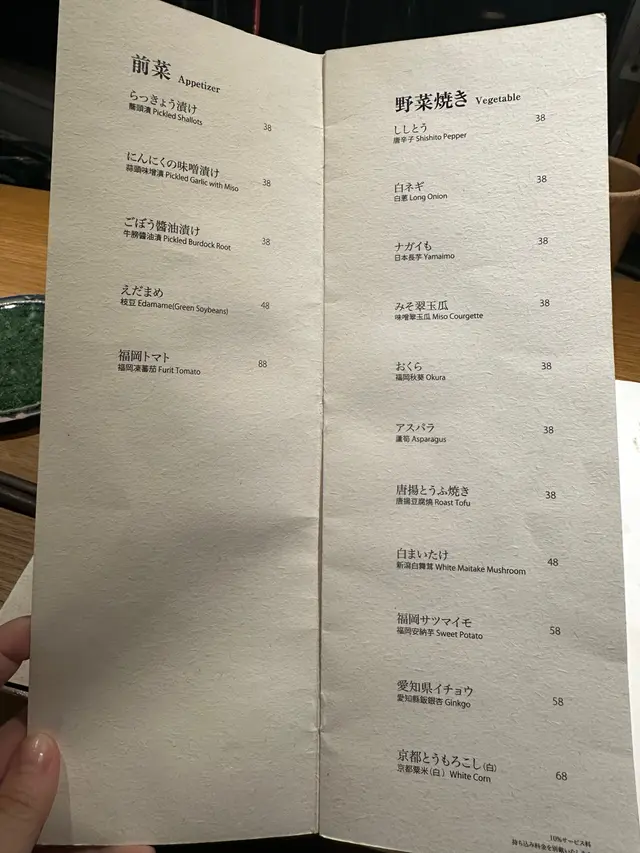 前菜 Appetizer
らっきょう漬け
蕎頭漬 Pickled Shallots 38
にんにくの味噌漬け
蒜頭味噌漬 Pickled Garlic with Miso 38
ごぼう醬油漬け
牛膀醬油漬 Pickled Burdock Root 38
えだまめ
枝豆 Edamame(Green Soybeans) 48
福岡トマト
福岡凍蕃茄 Furit Tomato 88
野菜焼き Vegetable
ししとう
唐辛子 Shishito Pepper 38
白ネギ
白蔥 Long Onion 38
ナガイも
日本長芋 Yamaimo 38
みそ翠玉瓜
味噌翠玉瓜 Miso Courgette 38
おくら
福岡秋葵 Okura 38
アスパラ
蘆筍 Asparagus 38
唐揚とうふ焼き
唐揚豆腐燒 Roast Tofu 38
白まいたけ
新潟白舞茸 White Maitake Mushroom 48
福岡サツマイモ
福岡安納芋 Sweet Potato 58
愛知県イチョウ
愛知縣飯銀杏 Ginkgo 58
京都とうもろこし(白)
京都粟米(白) White Corn 68
10%サービス料
持ち込み料金を頂戴いたし